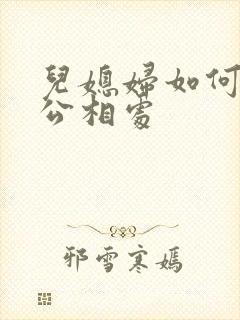 兒媳婦如何
公相處
邪雪寒嫣